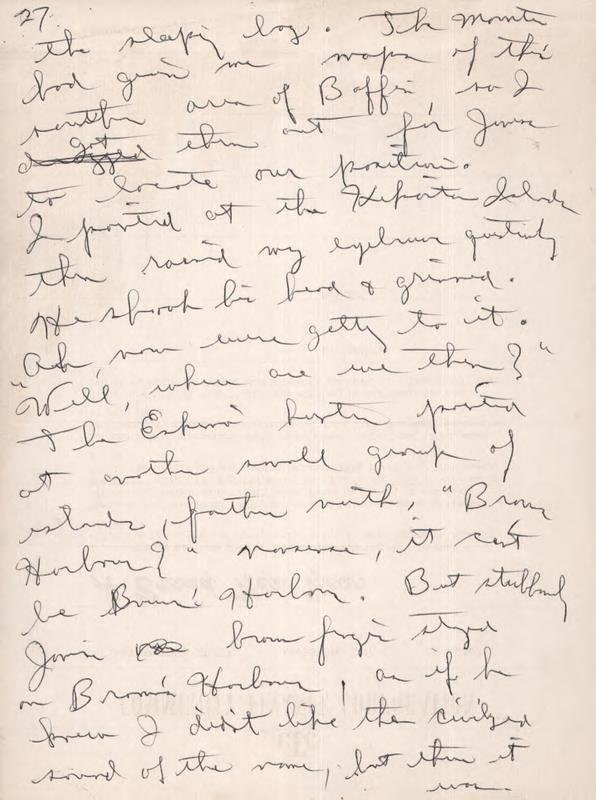 27.
the sleeping bag. The Mountie
had given me maps of this
southern area of Baffin, so I
got them out for Jamie
to locate our position.
I pointed at the Islands
then raised my eyebrows questioningly
He shook his head & grinned.
Ah, now we're getting to it.
"Well, where are we then?"
The Eskimo hunter pointed
at another small group of
islands, farther north, "Brown
Harbour?" nonsense, it can't
be Brown's Harbour. But stubbornly
brown finger stayed
on Brown's Harbour, as if he
knew I didn't like the civilized
sound of the name, but there it
was